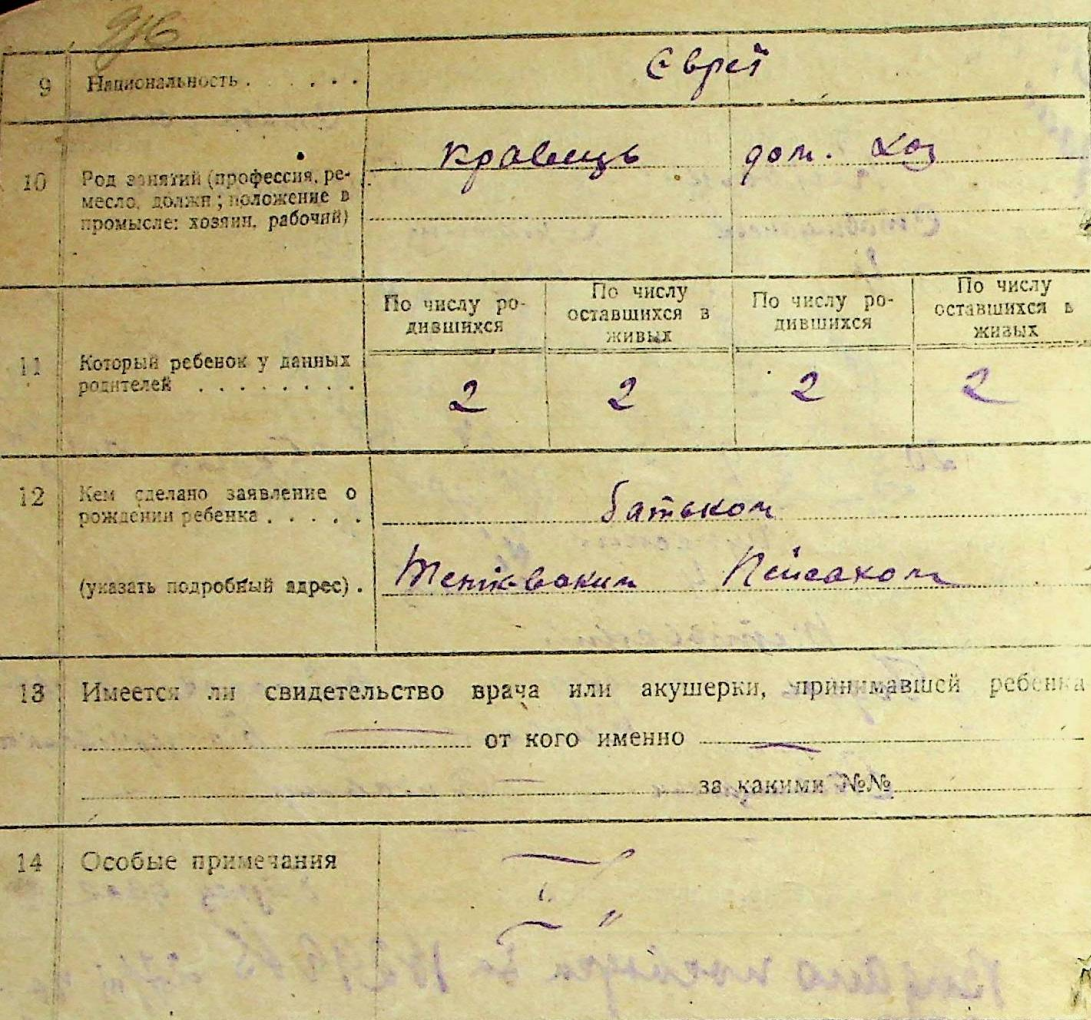 9 Национальность . . . . . Євреї
10 Род занятий (профессия, ре-
месло, должн; положение в
промысле: хозяин, рабочий)
кравець дом. хоз
По числу ро-
дившихся
По числу
оставшихся в
живых
По числу ро-
дившихся
По числу
оставшихся в
живых
11 Который ребенок у данных
родителей . . . . . . . .
2 2 2 2
12 Кем сделано заявление о
рождении ребенка . . . . .
батьком
(указать подробный адрес) .
Пейсахом
13 Имеется ли свидетельство врача или акушерки, принимавшей ребенка
от кого именно
за какими №№
14 Особые примечания